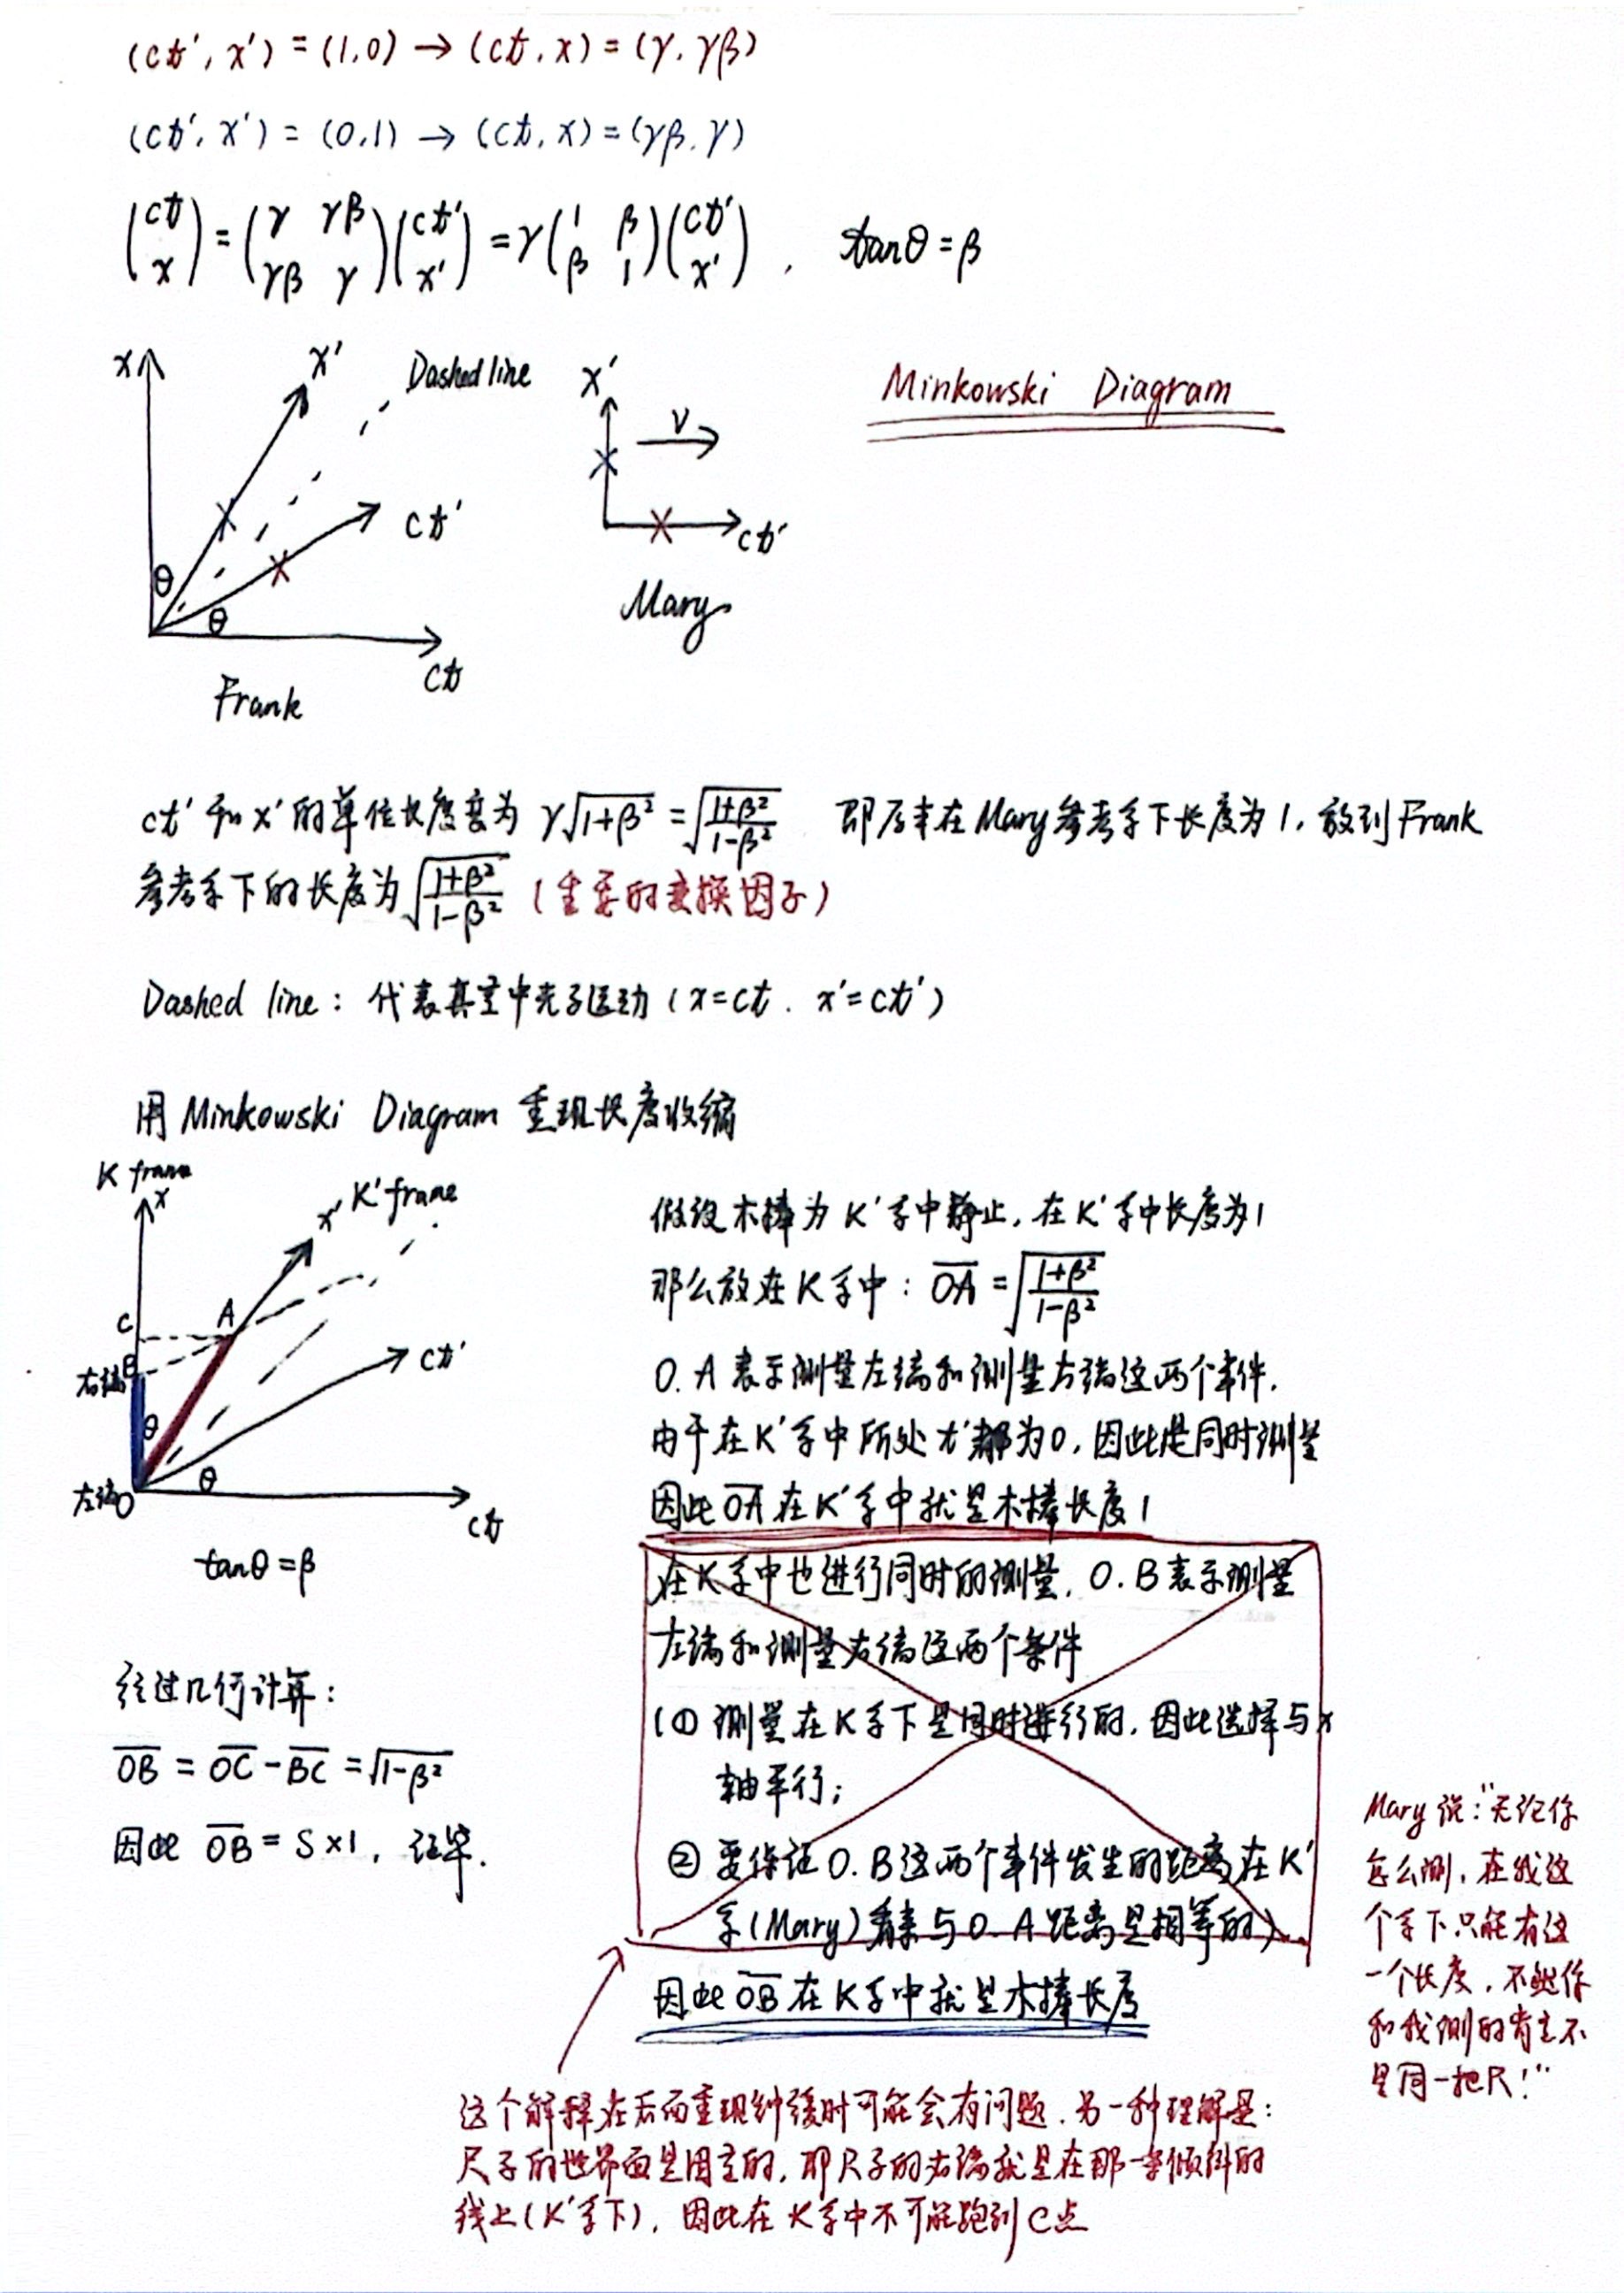 (ct', x') = (1,0) → (ct, x) = (γ, γβ)
(ct', x') = (0,1) → (ct, x) = (γβ, γ)
(ct x) = (γ γβ γβ γ)(ct' x') = γ(1 β β 1)(ct' x'), tanθ = β
x x' Dashed line x' v Minkowski Diagram
ct' ct'
θ θ Mary
ct
Frank
ct' 和 x' 的单位长度变为 γ√(1+β²) = √((1+β²)/(1-β²)) 即原本在Mary参考系下长度为1，放到Frank
参考系下的长度为 √((1+β²)/(1-β²)) (重要的变换因子)
Dashed line: 代表真空中光子运动 (x=ct. x'=ct')
用 Minkowski Diagram 重现长度收缩
K frame
x
x' K' frame
C A
B
右端
ct'
θ θ
左端O
ct
tanθ = β
假设木棒为K'系中静止，在K'系中长度为1
那么放在K系中: OA = √((1+β²)/(1-β²))
O. A 表示测量左端和测量右端这两个事件.
由于在K'系中所处t'都为0，因此是同时测量
因此OA在K'系中就是木棒长度1
在K系中也进行同时的测量, O. B 表示测量
左端和测量右端这两个条件
(① 测量在K系下是同时进行的, 因此选择与x
轴平行;
② 要保证O. B这两个事件发生的距离在K'
系(Mary)看来与O. A 距离是相等的)
因此OB在K系中就是木棒长度
经过几何计算:
OB = OC - BC = √(1-β²)
因此 OB = S×1, 证毕.
Mary说:"无论你
怎么测, 在我这
个系下只能有这
一个长度, 不然你
和我测的肯定不
是同一把尺!"
这个解释在后面重现钟缓时可能会有问题. 另一种理解是:
尺子的世界面是固定的, 即尺子的右端就是在那一条倾斜的
线上(K'系下), 因此在K系中不可能跑到C点